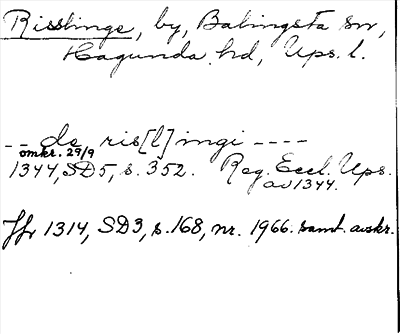 Risslinge, by, Balingsta sn,
Hagunda hd, Ups. l.
-- de ris[l]ingi ----
omkr. 29/9
1344, SD5, s. 352. Reg. Eccl. Ups.
av 1344.
Jfr 1314, SD3, s. 168, nr. 1966. samt. avskr.